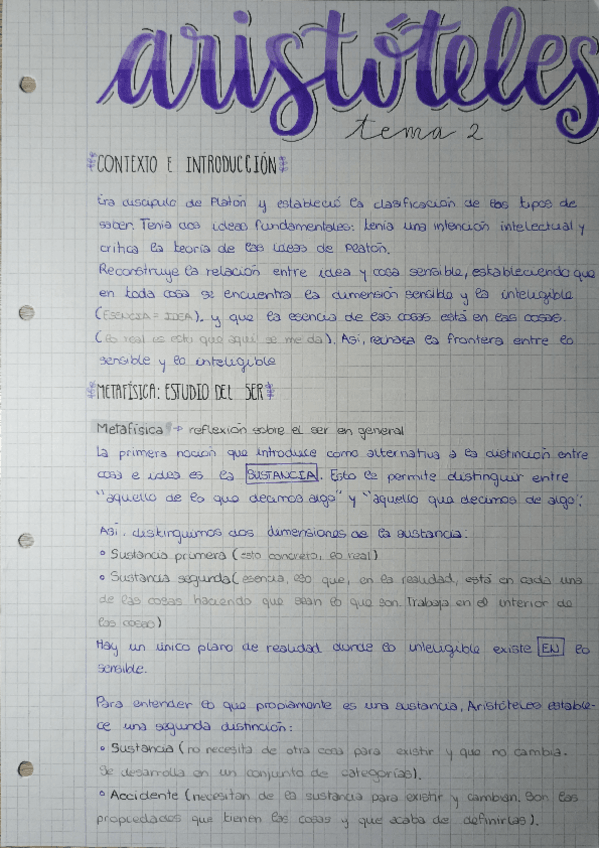 aristóteles
tema 2
CONTEXTO E INTRODUCCIÓN
Era discípulo de Platón y estableció la clasificación de los tipos de
saber. Tenía dos ideas fundamentales: tenía una intención intelectual y
critica la teoría de las ideas de Platón.
Reconstruye la relación entre idea y cosa sensible, estableciendo que
en toda cosa se encuentra la dimensión sensible y la inteligible
(ESENCIA = IDEA), y que la esencia de las cosas está en las cosas.
(lo real es esto que aquí se me da). Así, rechaza la frontera entre lo
sensible y lo inteligible
METAFÍSICA: ESTUDIO DEL SER
Metafísica → reflexión sobre el ser en general
La primera noción que introduce como alternativa a la distinción entre
cosa e idea es la SUSTANCIA. Esto le permite distinguir entre
"aquello de lo que decimos algo" y "aquello que decimos de algo".
Así, distinguimos dos dimensiones de la sustancia:
• Sustancia primera (esto concreto, lo real)
• Sustancia segunda (esencia, eso que, en la realidad, está en cada una
de las cosas haciendo que sean lo que son. Trabaja en el interior de
las cosas)
Hay un único plano de realidad donde lo inteligible existe EN lo
sensible.
Para entender lo que propiamente es una sustancia, Aristóteles estable-
ce una segunda distinción:
• Sustancia (no necesita de otra cosa para existir y que no cambia.
Se desarrolla en un conjunto de categorías).
• Accidente (necesitan de la sustancia para existir y cambian. Son las
propiedades que tienen las cosas y que acaba de definirlas).